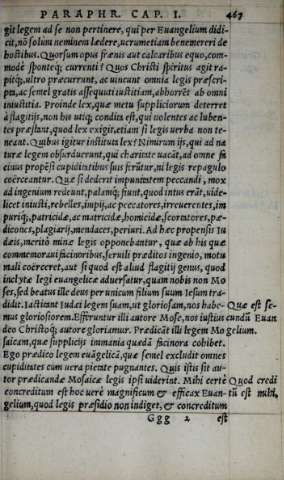 PARAPHR. CAP. I. 467
git legem ad se non pertinere, qui per Euangelium didi-
cit, nõ solum neminem lædere, uerumetiam benemereri de
hostibus. Quorsum opus frænis aut calcaribus equo, com-
modè sponteq́; currenti? Quos Christi spiritus agit ra-
pitq́;, ultro præcurrunt, ac uincunt omnia legis præscri-
pta, ac semel gratis assequuti iustitiam, abhorrẽt ab omni
iniustitia. Proinde lex, quæ metu suppliciorum deterret
à flagitijs, non his utiq; condita est, qui uolentes ac luben-
tes præstant, quod lex exigit, etiam si legis uerba non te-
neant. Quibus igitur instituta lex? Nimirum ijs, qui ad na
turæ legem obsurduerunt, quiq́ charitate uacãt, ad omne
cinus propẽsi cupiditatibus suis ferũtur, ni legis repagulo
coërceantur. Quæ si dederit impunitatem peccandi, mox
ad ingenium redeunt, palamq́; fiunt, quod intus erãt, uide-
licet iniusti, rebelles, impij, ac peccatores, irreuerentes, im
puriq́;, patricidæ, ac matricidæ, homicidæ, scortatores, pæ-
dicones, plagiarij, mendaces, periuri. Ad hæc propensis Iu
dæis, meritò minæ legis opponebantur, quæ ab his quæ
commemoraui facinoribus, seruili præditos ingenio, metu
mali coërceret, aut si quod est aliud flagitij genus, quod
inclytæ legi euangelicæ aduersatur, quam nobis non Mo
ses, sed beatus ille deus per unicum filium suum Iesum tra-
didit. Iactitant Iudæi legem suam, ut gloriosam, nos habe- Quæ est se-
mus gloriosiorem. Efferuntur illi autore Mose, nos iustius cundũ Euan
deo Christoq́; autore gloriamur. Prædicãt illi legem Mo gelium.
saicam, quæ supplicijs immania quædã facinora cohibet.
Ego prædico legem euãgelicã, quæ semel excludit omnes
cupiditates cum uera pietate pugnantes. Quis istis sit au-
tor prædicandæ Mosaicæ legis ipsi uiderint. Mihi certè Quod credi
concreditum est hoc uerè magnificum & efficax Euan- tũ est mihi.
gelium, quod legis præsidio non indiget, & concreditum
Ggg 2 est